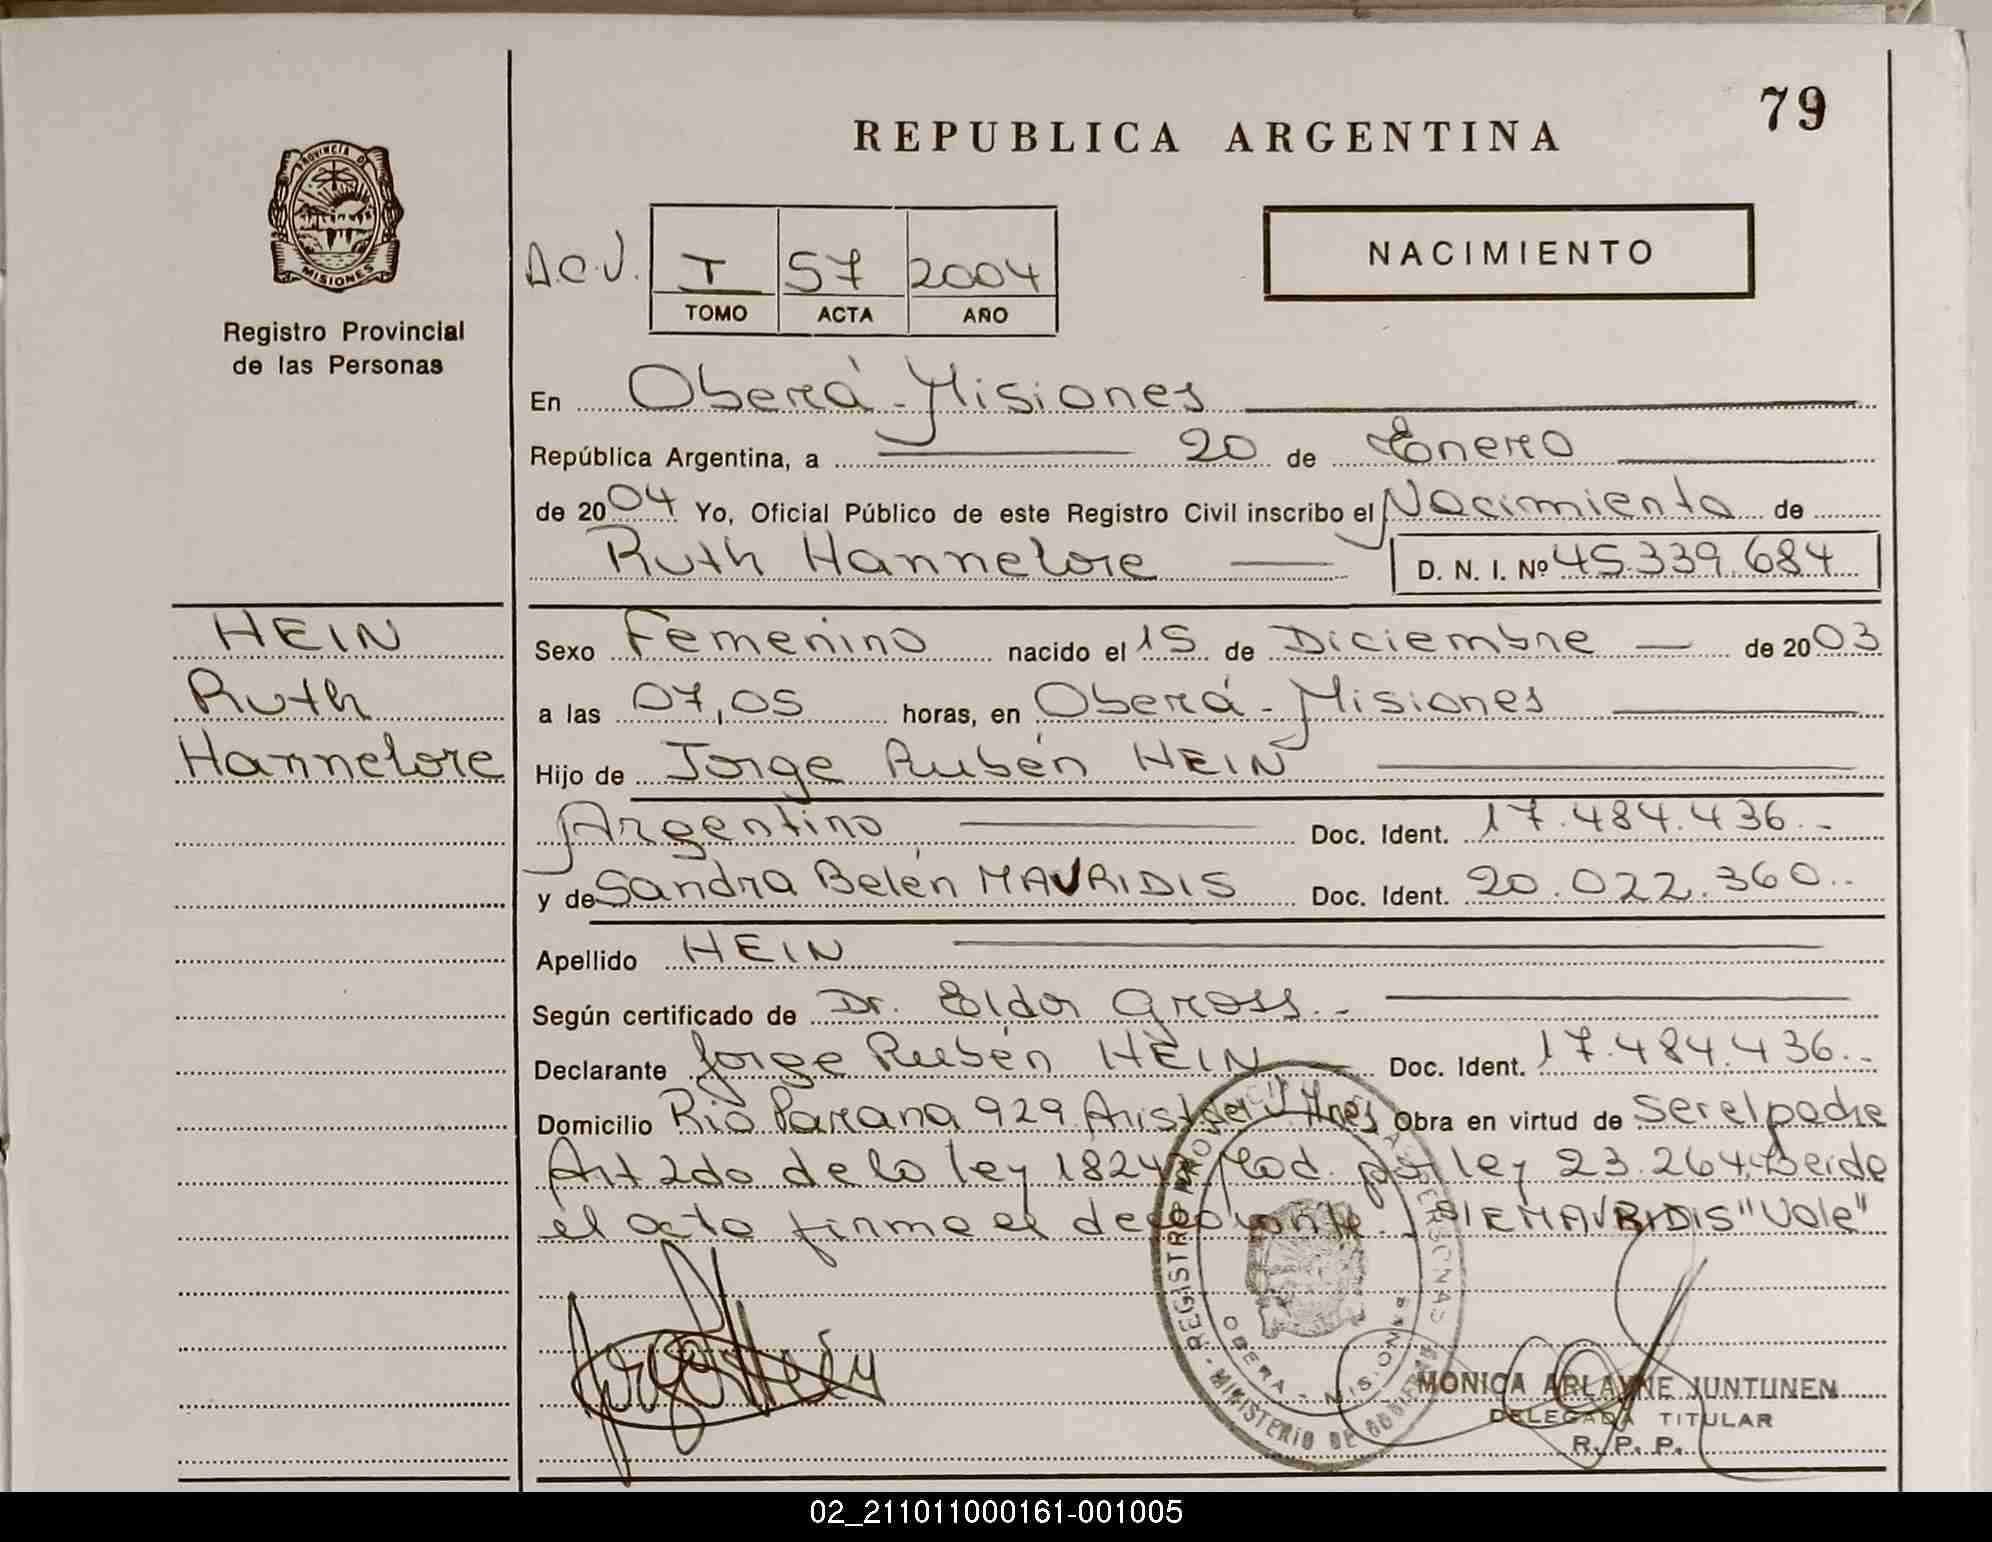 79
REPUBLICA ARGENTINA
PROVINCIA DE
MISIONES
Registro Provincial
de las Personas
D.C.V. I 57 2004
TOMO ACTA AÑO
NACIMIENTO
En Oberá - Misiones
República Argentina, a 20 de Enero
de 2004 Yo, Oficial Público de este Registro Civil inscribo el Nacimiento de
Ruth Hannelore D. N. I. Nº 45.339.684
HEIN
Ruth
Hannelore
Sexo Femenino nacido el 15 de Diciembre de 2003
a las 07,05 horas, en Oberá - Misiones
Hijo de Jorge Rubén HEIN
Argentino Doc. Ident. 17.484.436.-
y de Sandra Belén MAVRIDIS Doc. Ident. 20.022.360.-
Apellido HEIN
Según certificado de Dr. Eldor Gross.-
Declarante Jorge Rubén HEIN Doc. Ident. 17.484.436.-
Domicilio Rio Parana 929 Obra en virtud de ser el padre
Art 2do de la ley Mod. por ley 23.264.
el acta firma el MAVRIDIS "Vale"
REGISTRO PROVINCIAL DE LAS PERSONAS - MINISTERIO DE GOBIERNO
OBERA - MISIONES
MONICA ARLAYNE JUNTUNEN
DELEGADA TITULAR
R. P. P.
02_211011000161-001005